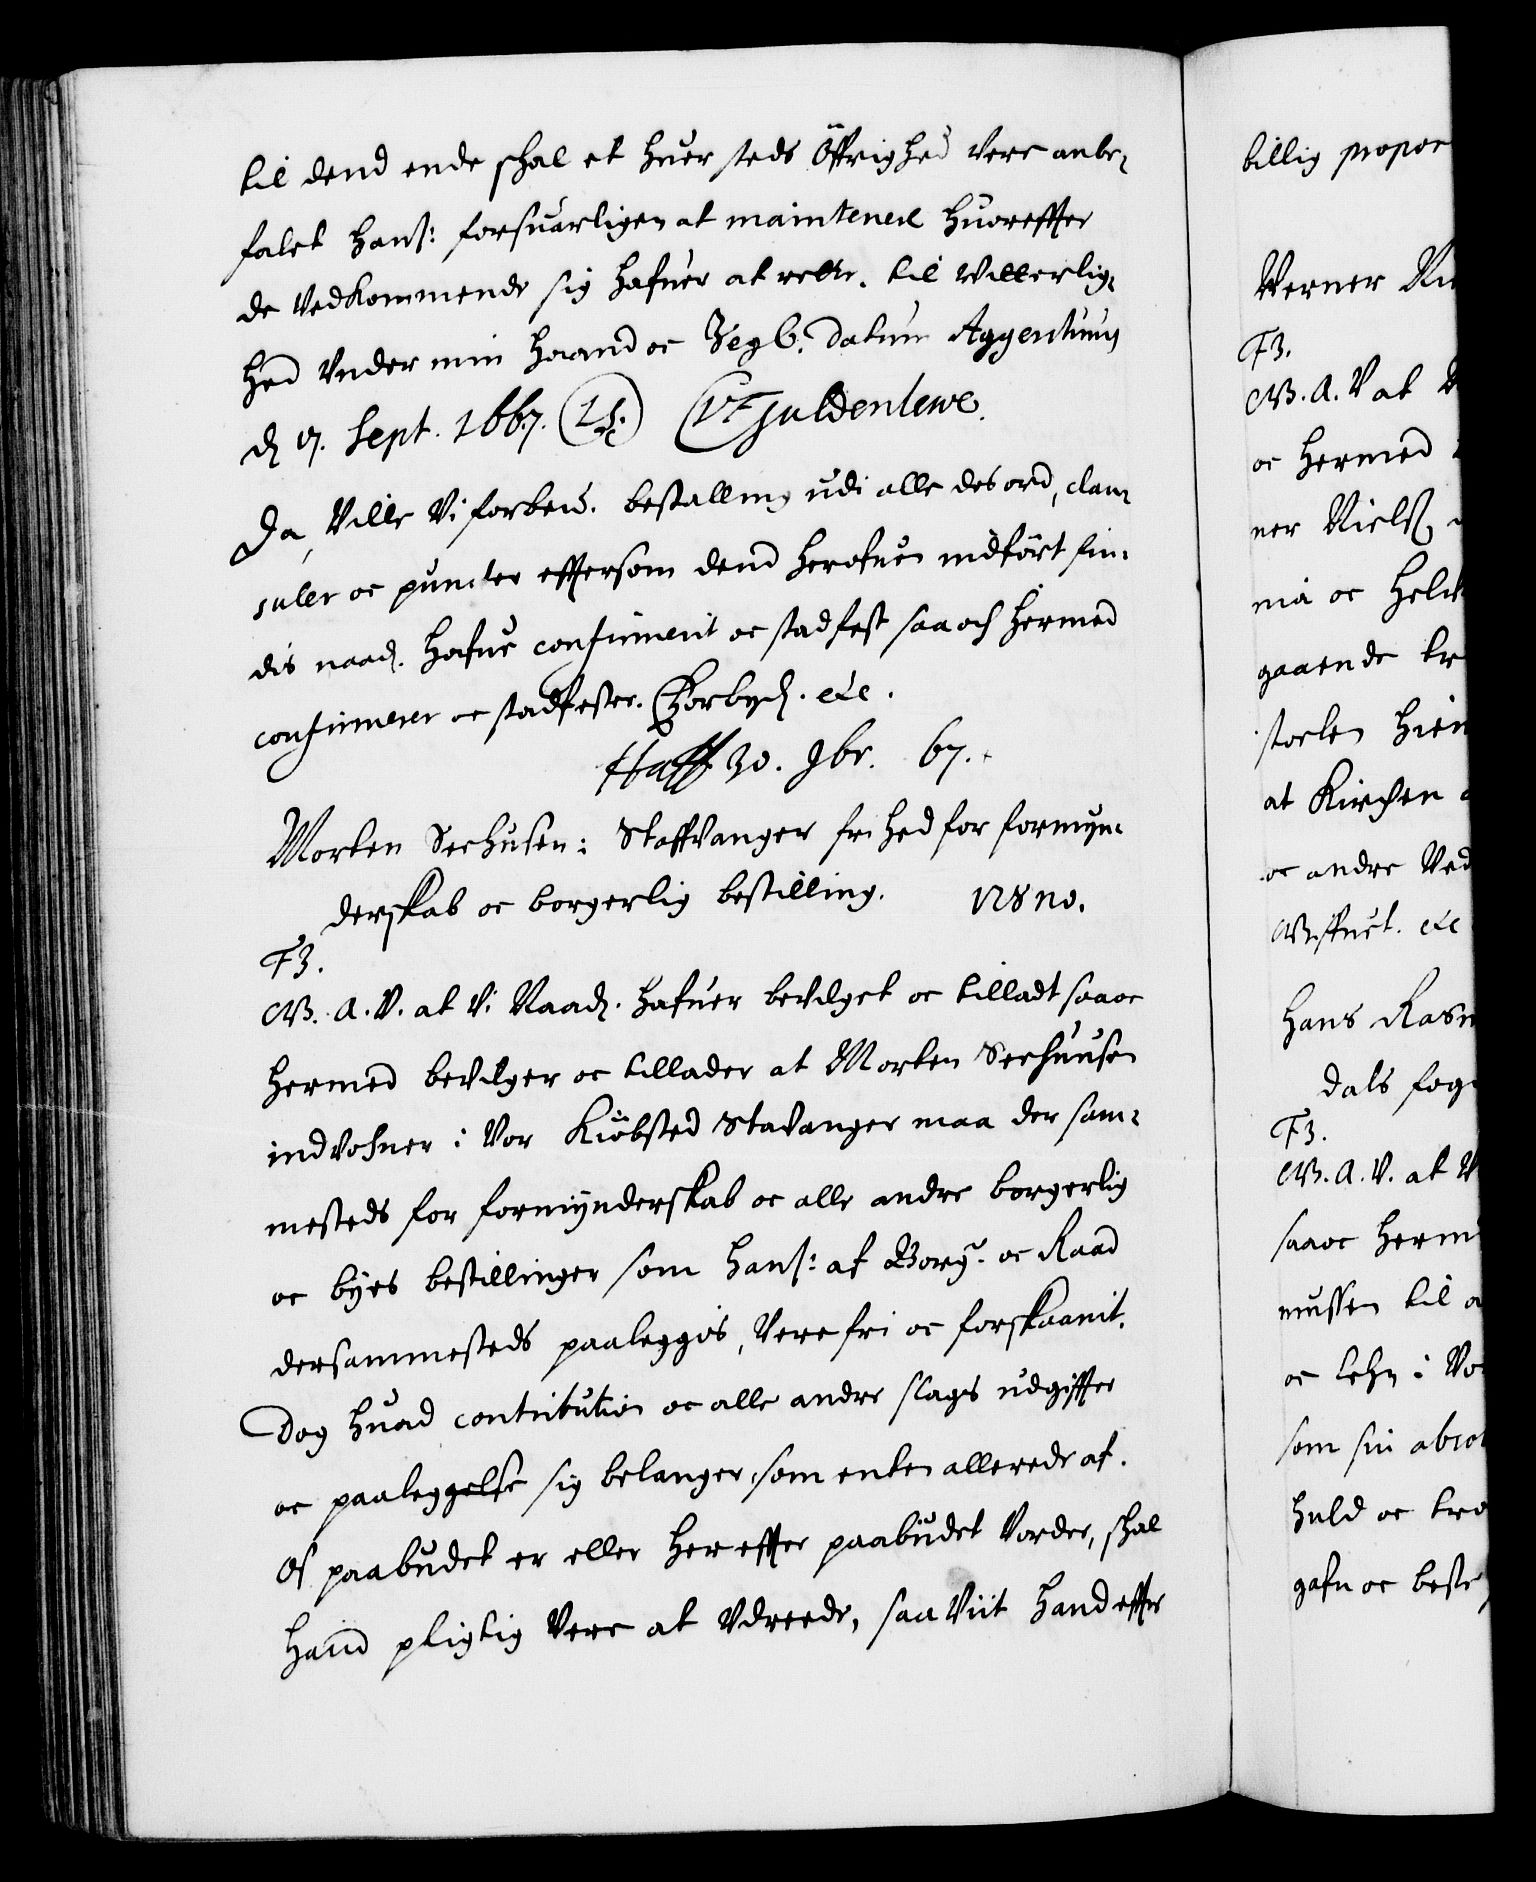 til dend ende schal et huer steds Öffrighed vere anbe-
falet hans: forsuarligen at maintenere huoreffter
de vedkommende sig hafuer at rette. til Witterlig-
hed vnder min haand oc Zegl. datum Aggershuus
dj 17. Sept. 1667. (L.S.) VFGuldenlewe.
Da, Ville Vi forbend. bestalling udi alle des ord, clau-
suler oc puncter effersom dend herofuen indfört fin-
dis naadj. hafue confirmerit oc stadfest saa och hermed
confirmerer oc stadfester. Forbydj. etc.
Haff. 30. 9br. 67.
Morten Seehusen i Staffvanger frihed for formyn-
derskab oc borgerlig bestilling. NB no.
F3.
G.A.V. at Vi Naadj. hafuer bevilget oc tilladt saa oc
hermed bevilger oc tillader at Morten Seehuusen
indvohner i Vor Kiöbsted Stavanger maa der sam-
mesteds for formÿnderskab oc alle andre borgerlig
oc byes bestillinger som hans: af Borgm. oc Raad
dersammesteds paaleggis, Vere fri oc forskaanit.
Dog huad contribution oc alle andre slags udgiffter
oc paaleggelse sig belanger, som enten allerede af
Os paabudet er eller her effter paabudet Vorder, schal
hand pligtig Vere at Vdreede, saa Viit hand effter
billig propor
Verner Ni
F3.
G.A.V at
oc hermed
ner Niels
mia oc
gaaende
storlen
at Kirchen
oc andre Ved
etc
Hans Rasm
dals fog
F3.
G.A.V. at V
saa oc herm
mussen til
oc lehn i Vo
som sin
huld oc tro
gafn oc beste